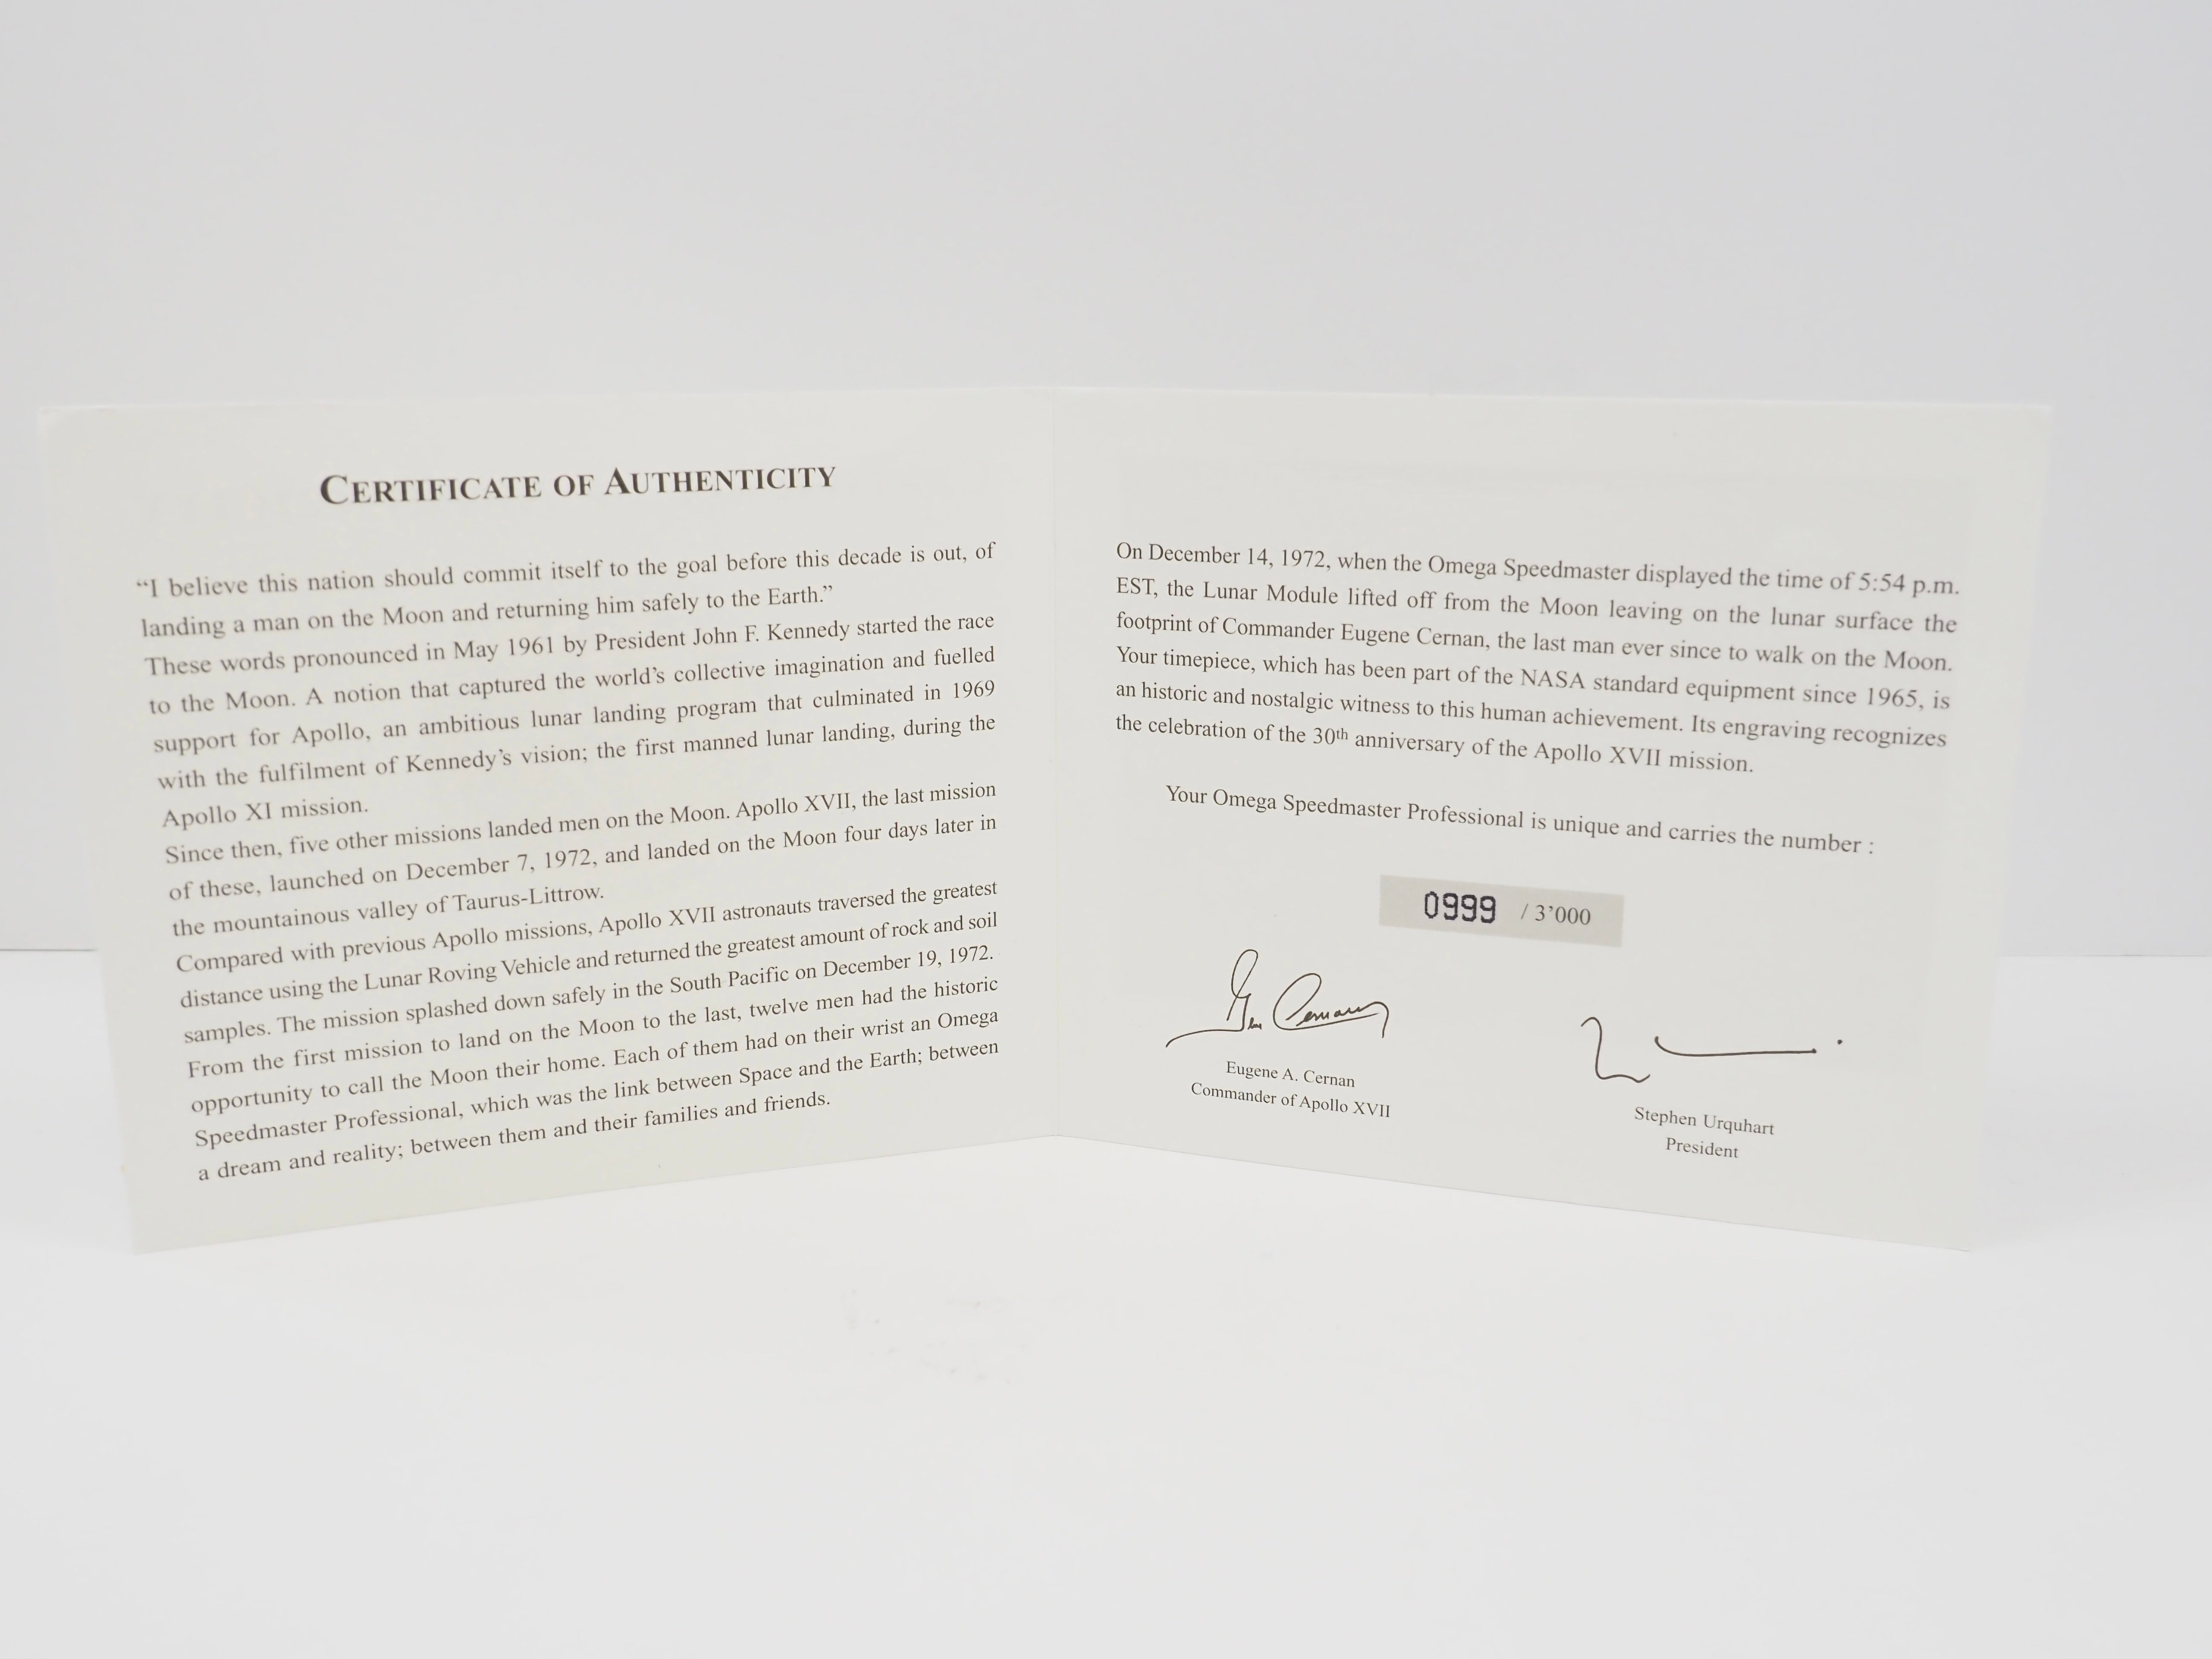 CERTIFICATE OF AUTHENTICITY
“I believe this nation should commit itself to the goal before this decade is out, of
landing a man on the Moon and returning him safely to the Earth.”
These words pronounced in May 1961 by President John F. Kennedy started the race
to the Moon. A notion that captured the world’s collective imagination and fuelled
support for Apollo, an ambitious lunar landing program that culminated in 1969
with the fulfilment of Kennedy’s vision; the first manned lunar landing, during the
Apollo XI mission.
Since then, five other missions landed men on the Moon. Apollo XVII, the last mission
of these, launched on December 7, 1972, and landed on the Moon four days later in
the mountainous valley of Taurus-Littrow.
Compared with previous Apollo missions, Apollo XVII astronauts traversed the greatest
distance using the Lunar Roving Vehicle and returned the greatest amount of rock and soil
samples. The mission splashed down safely in the South Pacific on December 19, 1972.
From the first mission to land on the Moon to the last, twelve men had the historic
opportunity to call the Moon their home. Each of them had on their wrist an Omega
Speedmaster Professional, which was the link between Space and the Earth; between
a dream and reality; between them and their families and friends.
On December 14, 1972, when the Omega Speedmaster displayed the time of 5:54 p.m.
EST, the Lunar Module lifted off from the Moon leaving on the lunar surface the
footprint of Commander Eugene Cernan, the last man ever since to walk on the Moon.
Your timepiece, which has been part of the NASA standard equipment since 1965, is
an historic and nostalgic witness to this human achievement. Its engraving recognizes
the celebration of the 30th anniversary of the Apollo XVII mission.
Your Omega Speedmaster Professional is unique and carries the number :
0999 / 3’000
Gene Cernan
Eugene A. Cernan
Commander of Apollo XVII
Stephen Urquhart
President